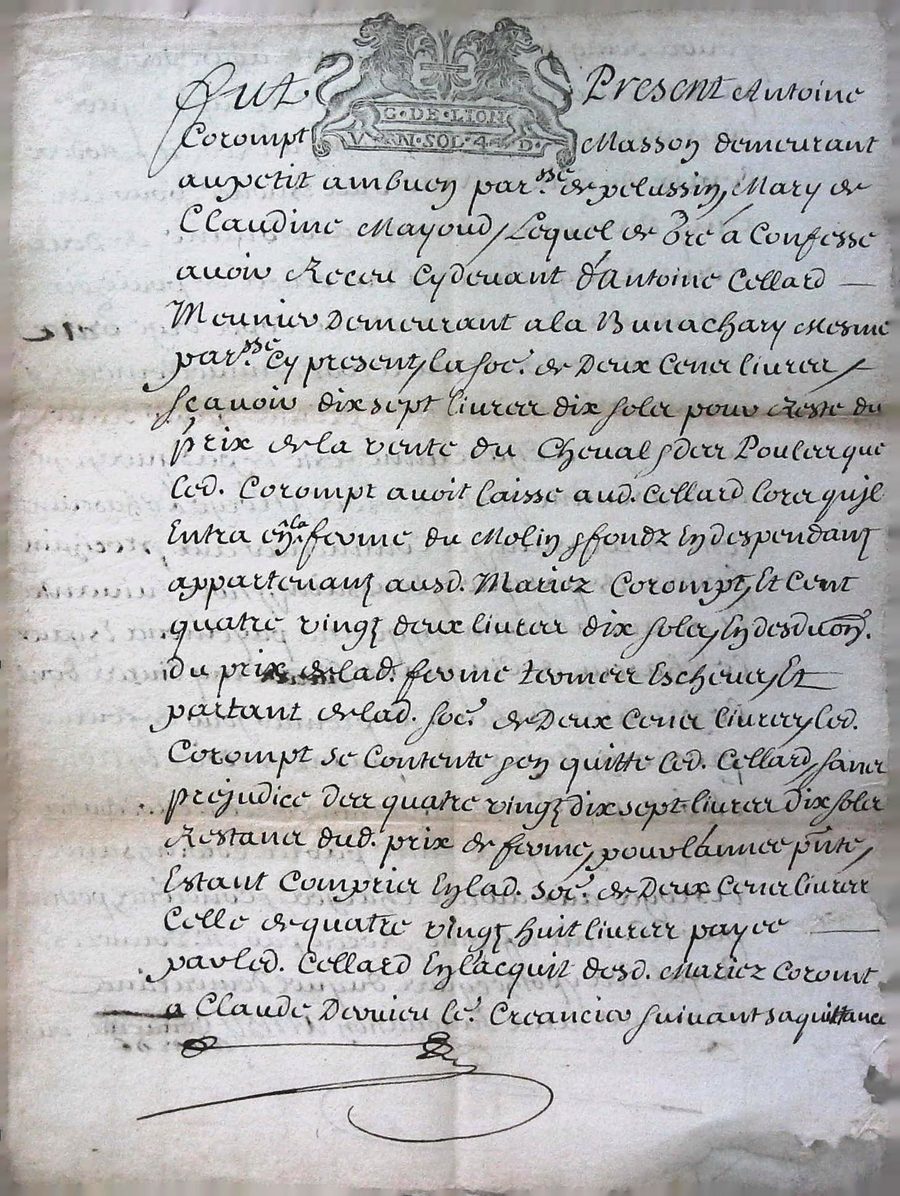 G·DE·LION
V·N·SOL·4·D·
Fut Present Antoine
Corompt Masson demeurant
au petit ambuen par.sse de pelussin, Mary de
Claudine Mayoud, Lequel de gré à Confessé
avoir Receu Cydevant d'Antoine Cellard
Meunier Demeurant a la Bunachary Mesme
par.sse Cy present, la so.e de Deux Cens livres,
scavoir dix sept livres dix sols pour Reste du
prix de la vente du Cheval & des Poules que
led. Corompt avoit laissé aud. Cellard lors qu'jl
Entra en la ferme du Molin & fondz En despendantz
appartenantz ausd. Mariez Corompt, Et Cent
quatre vingtz deux livres dix sols, En desduon.
du prix de lad. ferme termes Escheus, Et
partant de lad. so.e de Deux Cens livres, led.
Corompt se Contente & en quitte led. Cellard, sans
prejudice des quatre vingtz dix sept livres Dix sols
Restans dud. prix de ferme, pour l'année pnte,
Estant Compris En lad. so.e de Deux Cens livres
Celle de quatre vingtz huit livres payée
par led. Cellard En l'acquit desd. Mariez Coromt
a Claude Dervieu le. Creancier suivant sa quittance